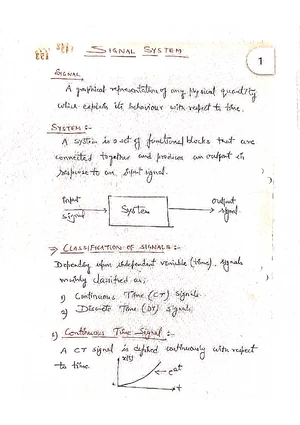 SIGNAL SYSTEM
1
SIGNAL
A graphical representation of any physical quantity
which explain its behaviour with respect to time.
SYSTEM :-
A system is a set of functional blocks that are
connected together and produce an output in
response to an input signal.
input signal
System
output signal
⇒ CLASSIFICATION OF SIGNALS :-
Depending upon independent variable (time), signals
mainly classified as;
1) Continuous Time (CT) Signals.
2) Discrete Time (DT) Signals
1) Continuous Time Signal :-
A CT signal is defined continuously with respect
to time.
x(t)
e^at
t